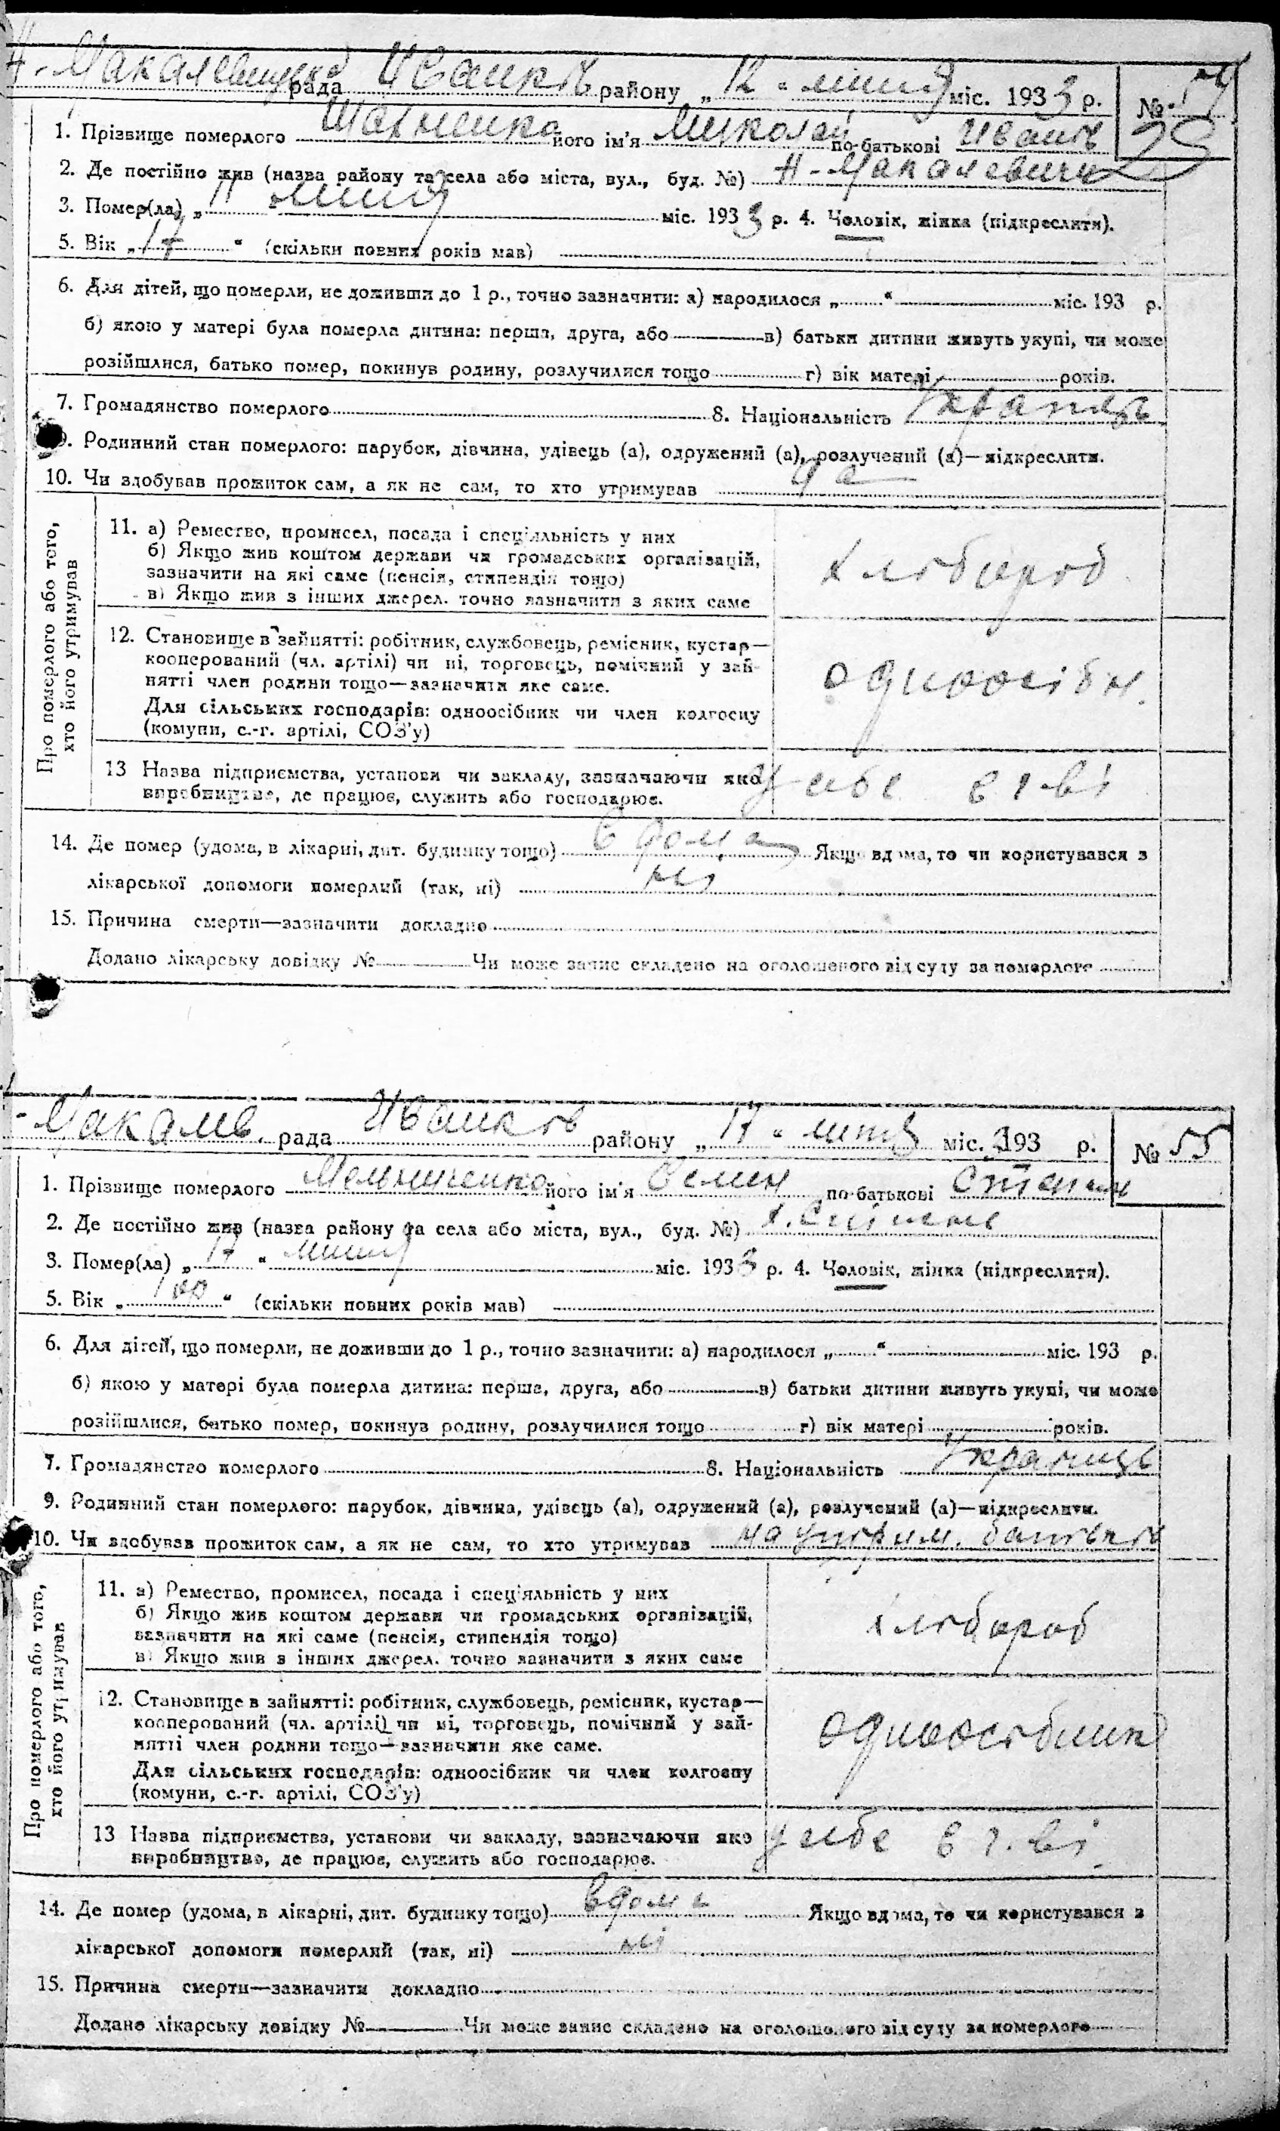 Н-Макалевицька рада Иванків району „12 - липня міс. 1933 р. № 54
1. Прізвище померлого його ім'я Миколай по-батькові Иванів 25
2. Де постійно жив (назва району та села або міста, вул., буд. №) Н-Макалевичи
3. Помер(ла) „11 липня міс. 1933 р. 4. Чоловік, жінка (підкреслити).
5. Вік „17“ (скільки повних років мав)
6. Для дітей, що померли, не доживши до 1 р., точно зазначити: а) народилося „ “ міс. 193 р.
б) якою у матері була померла дитина: перша, друга, або в) батьки дитини живуть укупі, чи може
розійшлися, батько помер, покинув родину, розлучилися тощо г) вік матері років.
7. Громадянство померлого 8. Національність
9. Родинний стан померлого: парубок, дівчина, удівець (а), одружений (а), розлучений (а)—підкреслити.
10. Чи здобував прожиток сам, а як не сам, то хто утримував да
Про померлого або того,
хто його утримував
11. а) Ремество, промисел, посада і спеціяльність у них
б) Якщо жив коштом держави чи громадських організацій,
зазначити на які саме (пенсія, стипендія тощо)
в) Якщо жив з інших джерел, точно зазначити з яких саме
хлібороб
12. Становище в зайнятті: робітник, службовець, ремісник, кустар—
кооперований (чл. артілі) чи ні, торговець, помічний у зай-
нятті член родини тощо—зазначити яке саме.
Для сільських господарів: одноосібник чи член колгоспу
(комуни, с.-г. артілі, СОЗ'у)
одноосібн.
13 Назва підприємства, установи чи закладу, зазначаючи яке
виробництво, де працює, служить або господарює.
у себе в г-ві
14. Де помер (удома, в лікарні, дит. будинку тощо) в дома Якщо вдома, то чи користувався з
лікарської допомоги померлий (так, ні) ні
15. Причина смерти—зазначити докладно
Додано лікарську довідку № Чи може запис складено на оголошеного від суду за померлого
-Макалів. рада Иванків району „17 - липня міс. 1933 р. № 55
1. Прізвище померлого Мельниченко його ім'я Семен по-батькові Степан
2. Де постійно жив (назва району та села або міста, вул., буд. №) х.
3. Помер(ла) „17“ липня міс. 1933 р. 4. Чоловік, жінка (підкреслити).
5. Вік „100“ (скільки повних років мав)
6. Для дітей, що померли, не доживши до 1 р., точно зазначити: а) народилося „ “ міс. 193 р.
б) якою у матері була померла дитина: перша, друга, або в) батьки дитини живуть укупі, чи може
розійшлися, батько помер, покинув родину, розлучилися тощо г) вік матері років.
7. Громадянство померлого 8. Національність Украинць
9. Родинний стан померлого: парубок, дівчина, удівець (а), одружений (а), розлучений (а)—підкреслити.
10. Чи здобував прожиток сам, а як не сам, то хто утримував на утрим. батьків
Про померлого або того,
хто його утримував
11. а) Ремество, промисел, посада і спеціяльність у них
б) Якщо жив коштом держави чи громадських організацій,
зазначити на які саме (пенсія, стипендія тощо)
в) Якщо жив з інших джерел, точно зазначити з яких саме
хлібороб
12. Становище в зайнятті: робітник, службовець, ремісник, кустар—
кооперований (чл. артілі) чи ні, торговець, помічний у зай-
нятті член родини тощо—зазначити яке саме.
Для сільських господарів: одноосібник чи член колгоспу
(комуни, с.-г. артілі, СОЗ'у)
одноосібник
13 Назва підприємства, установи чи закладу, зазначаючи яке
виробництво, де працює, служить або господарює.
у себе в г.ві
14. Де помер (удома, в лікарні, дит. будинку тощо) вдома Якщо вдома, то чи користувався з
лікарської допомоги померлий (так, ні) ні
15. Причина смерти—зазначити докладно
Додано лікарську довідку № Чи може запис складено на оголошеного від суду за померлого